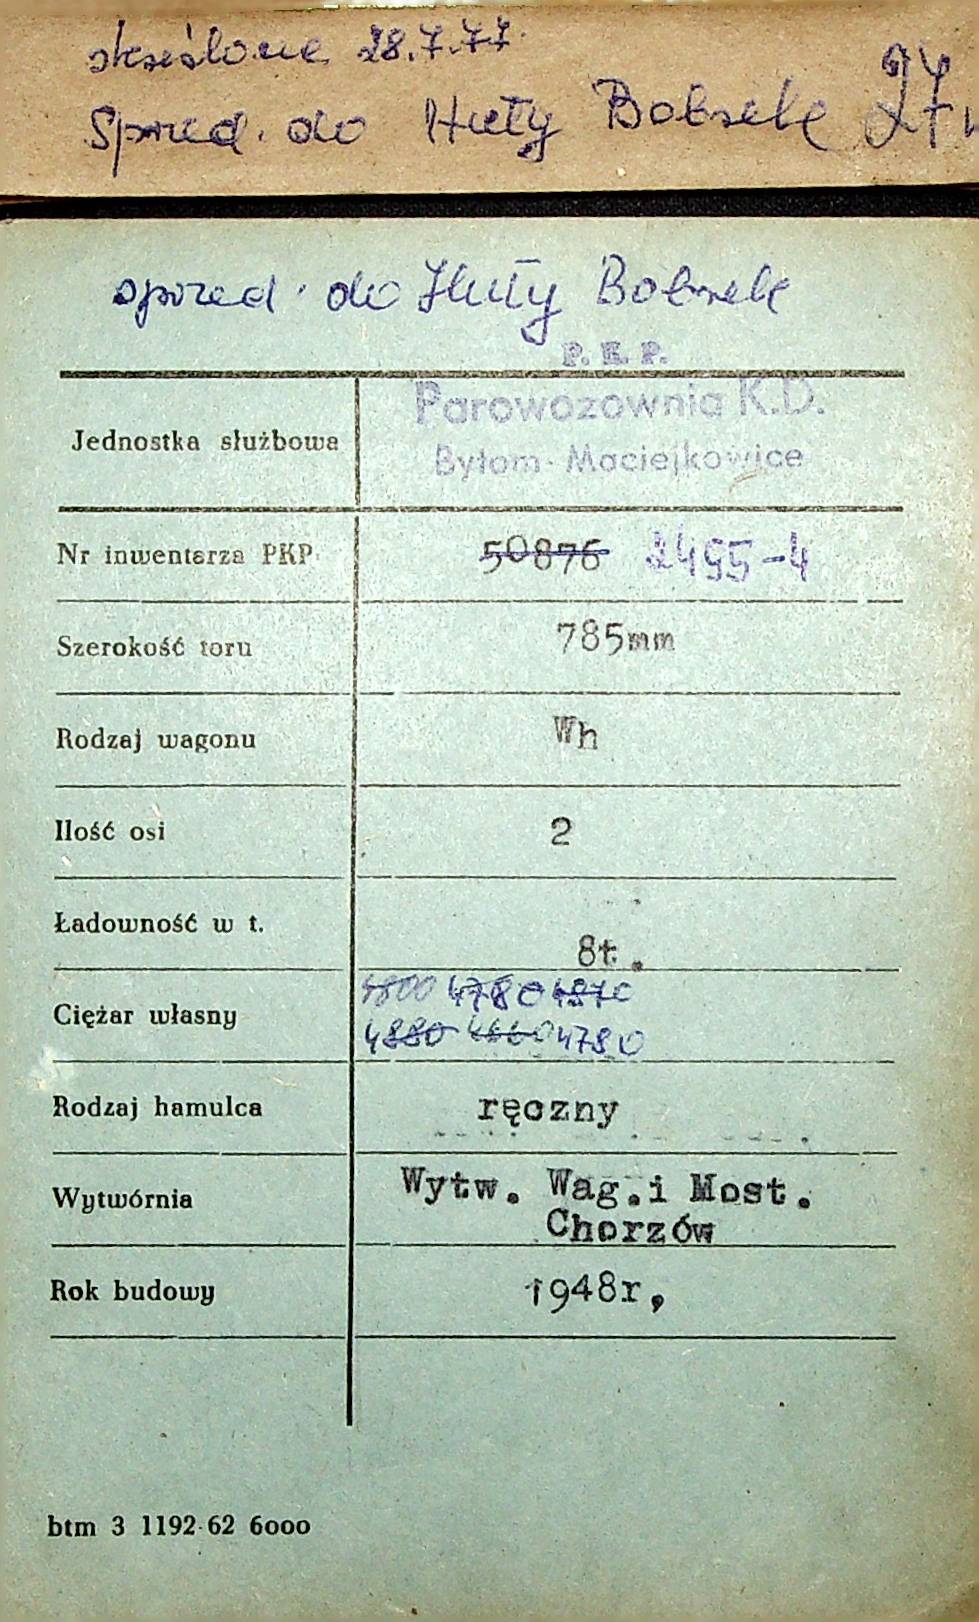 skreślone 28.7.77.
Spred. do Huty Bobrek 27
spred. do Huty Bobrek
P. K. P.
Parowozownia K.D.
Jednostka służbowa
Bytom-Maciejkowice
Nr inwentarza PKP 50876 2495-4
Szerokość toru 785mm
Rodzaj wagonu Wh
Ilość osi 2
Ładowność w t. 8t.
4800 4780 4870
Ciężar własny
4880 4660 4780
Rodzaj hamulca ręczny
Wytw. Wag.i Most.
Wytwórnia
Chorzów
Rok budowy 1948r,
btm 3 1192-62 6000